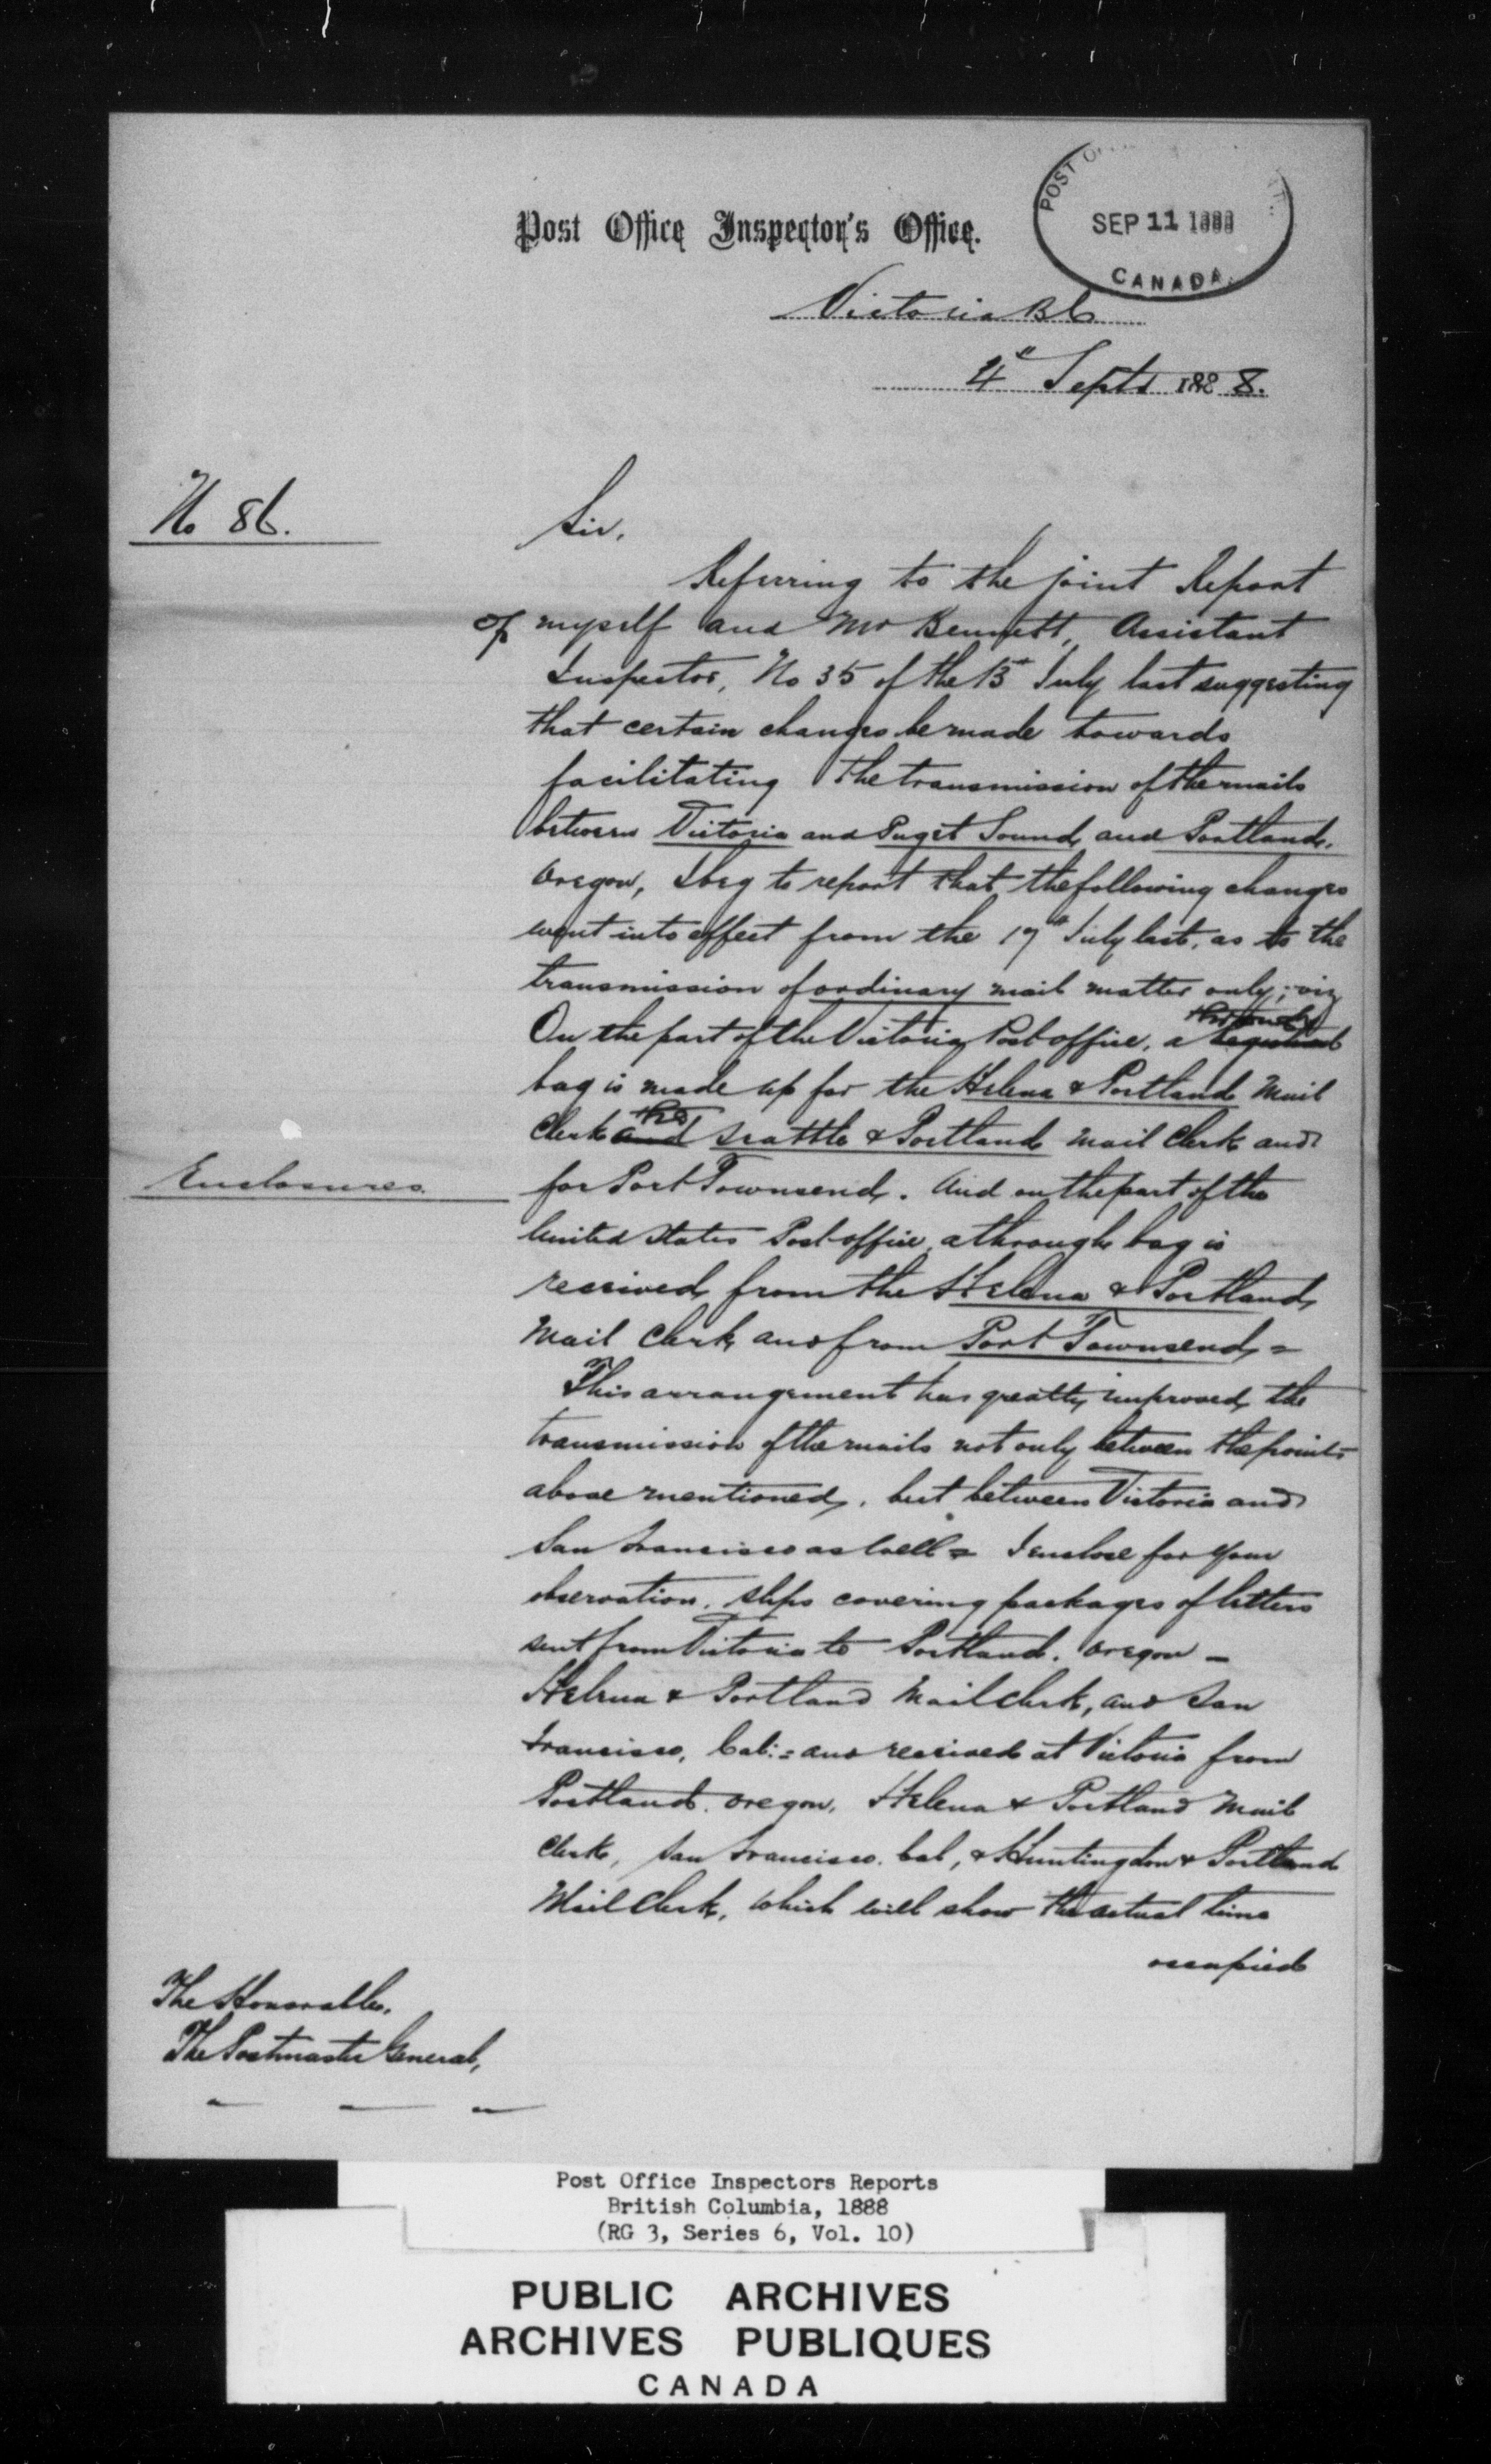 Post Office Inspector's Office.
POST O
SEP 11 1888
CANADA
Victoria B C
4th Septr 1888.
No 86.
Sir,
Referring to the joint Report
of myself and Mr Bennett, Assistant
Inspector, No 35 of the 13th July last suggesting
that certain changes be made towards
facilitating the transmission of the mails
between Victoria and Puget Sound, and Portland,
Oregon, I beg to report that the following changes
went into effect from the 17th July last, as to the
transmission of ordinary mail matter only; viz
On the part of the Victoria Post office, a through
bag is made up for the Helena & Portland Mail
Clerk the Seattle & Portland Mail Clerk and
for Port Townsend. And on the part of the
Enclosures.
United States Post office, a through bag is
received from the Helena & Portland
Mail Clerk and from Port Townsend =
This arrangement has greatly improved the
transmission of the mails not only between the points
above mentioned, but between Victoria and
San Francisco as well = I enclose for your
observation, slips covering packages of letters
sent from Victoria to Portland, Oregon —
Helena & Portland Mail Clerk, and San
Francisco, Cal: = and received at Victoria from
Portland, Oregon, Helena & Portland Mail
Clerk, San Francisco, Cal, & Huntingdon & Portland
Mail Clerk, which will show the actual time
occupied
The Honorable,
The Postmaster General,
Post Office Inspectors Reports
British Columbia, 1888
(RG 3, Series 6, Vol. 10)
PUBLIC ARCHIVES
ARCHIVES PUBLIQUES
CANADA